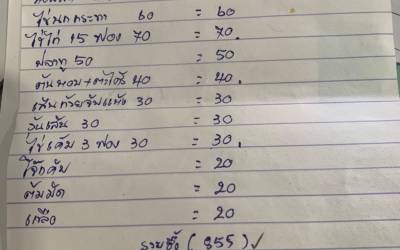 ไข่นกกระทา 60 = 60
ไข่ไก่ 15 ฟอง 70 = 70.
ปลาทู 50 = 50
ต้นหอม+ตะไคร้ 40 = 40.
เส้นก๋วยจั๊บแห้ง 30 = 30
วุ้นเส้น 30 = 30
ไข่เค็ม 3 ฟอง 30 = 30.
= 20
ต้มมัด = 20
เกลือ = 20
รวมซื้อ (855)